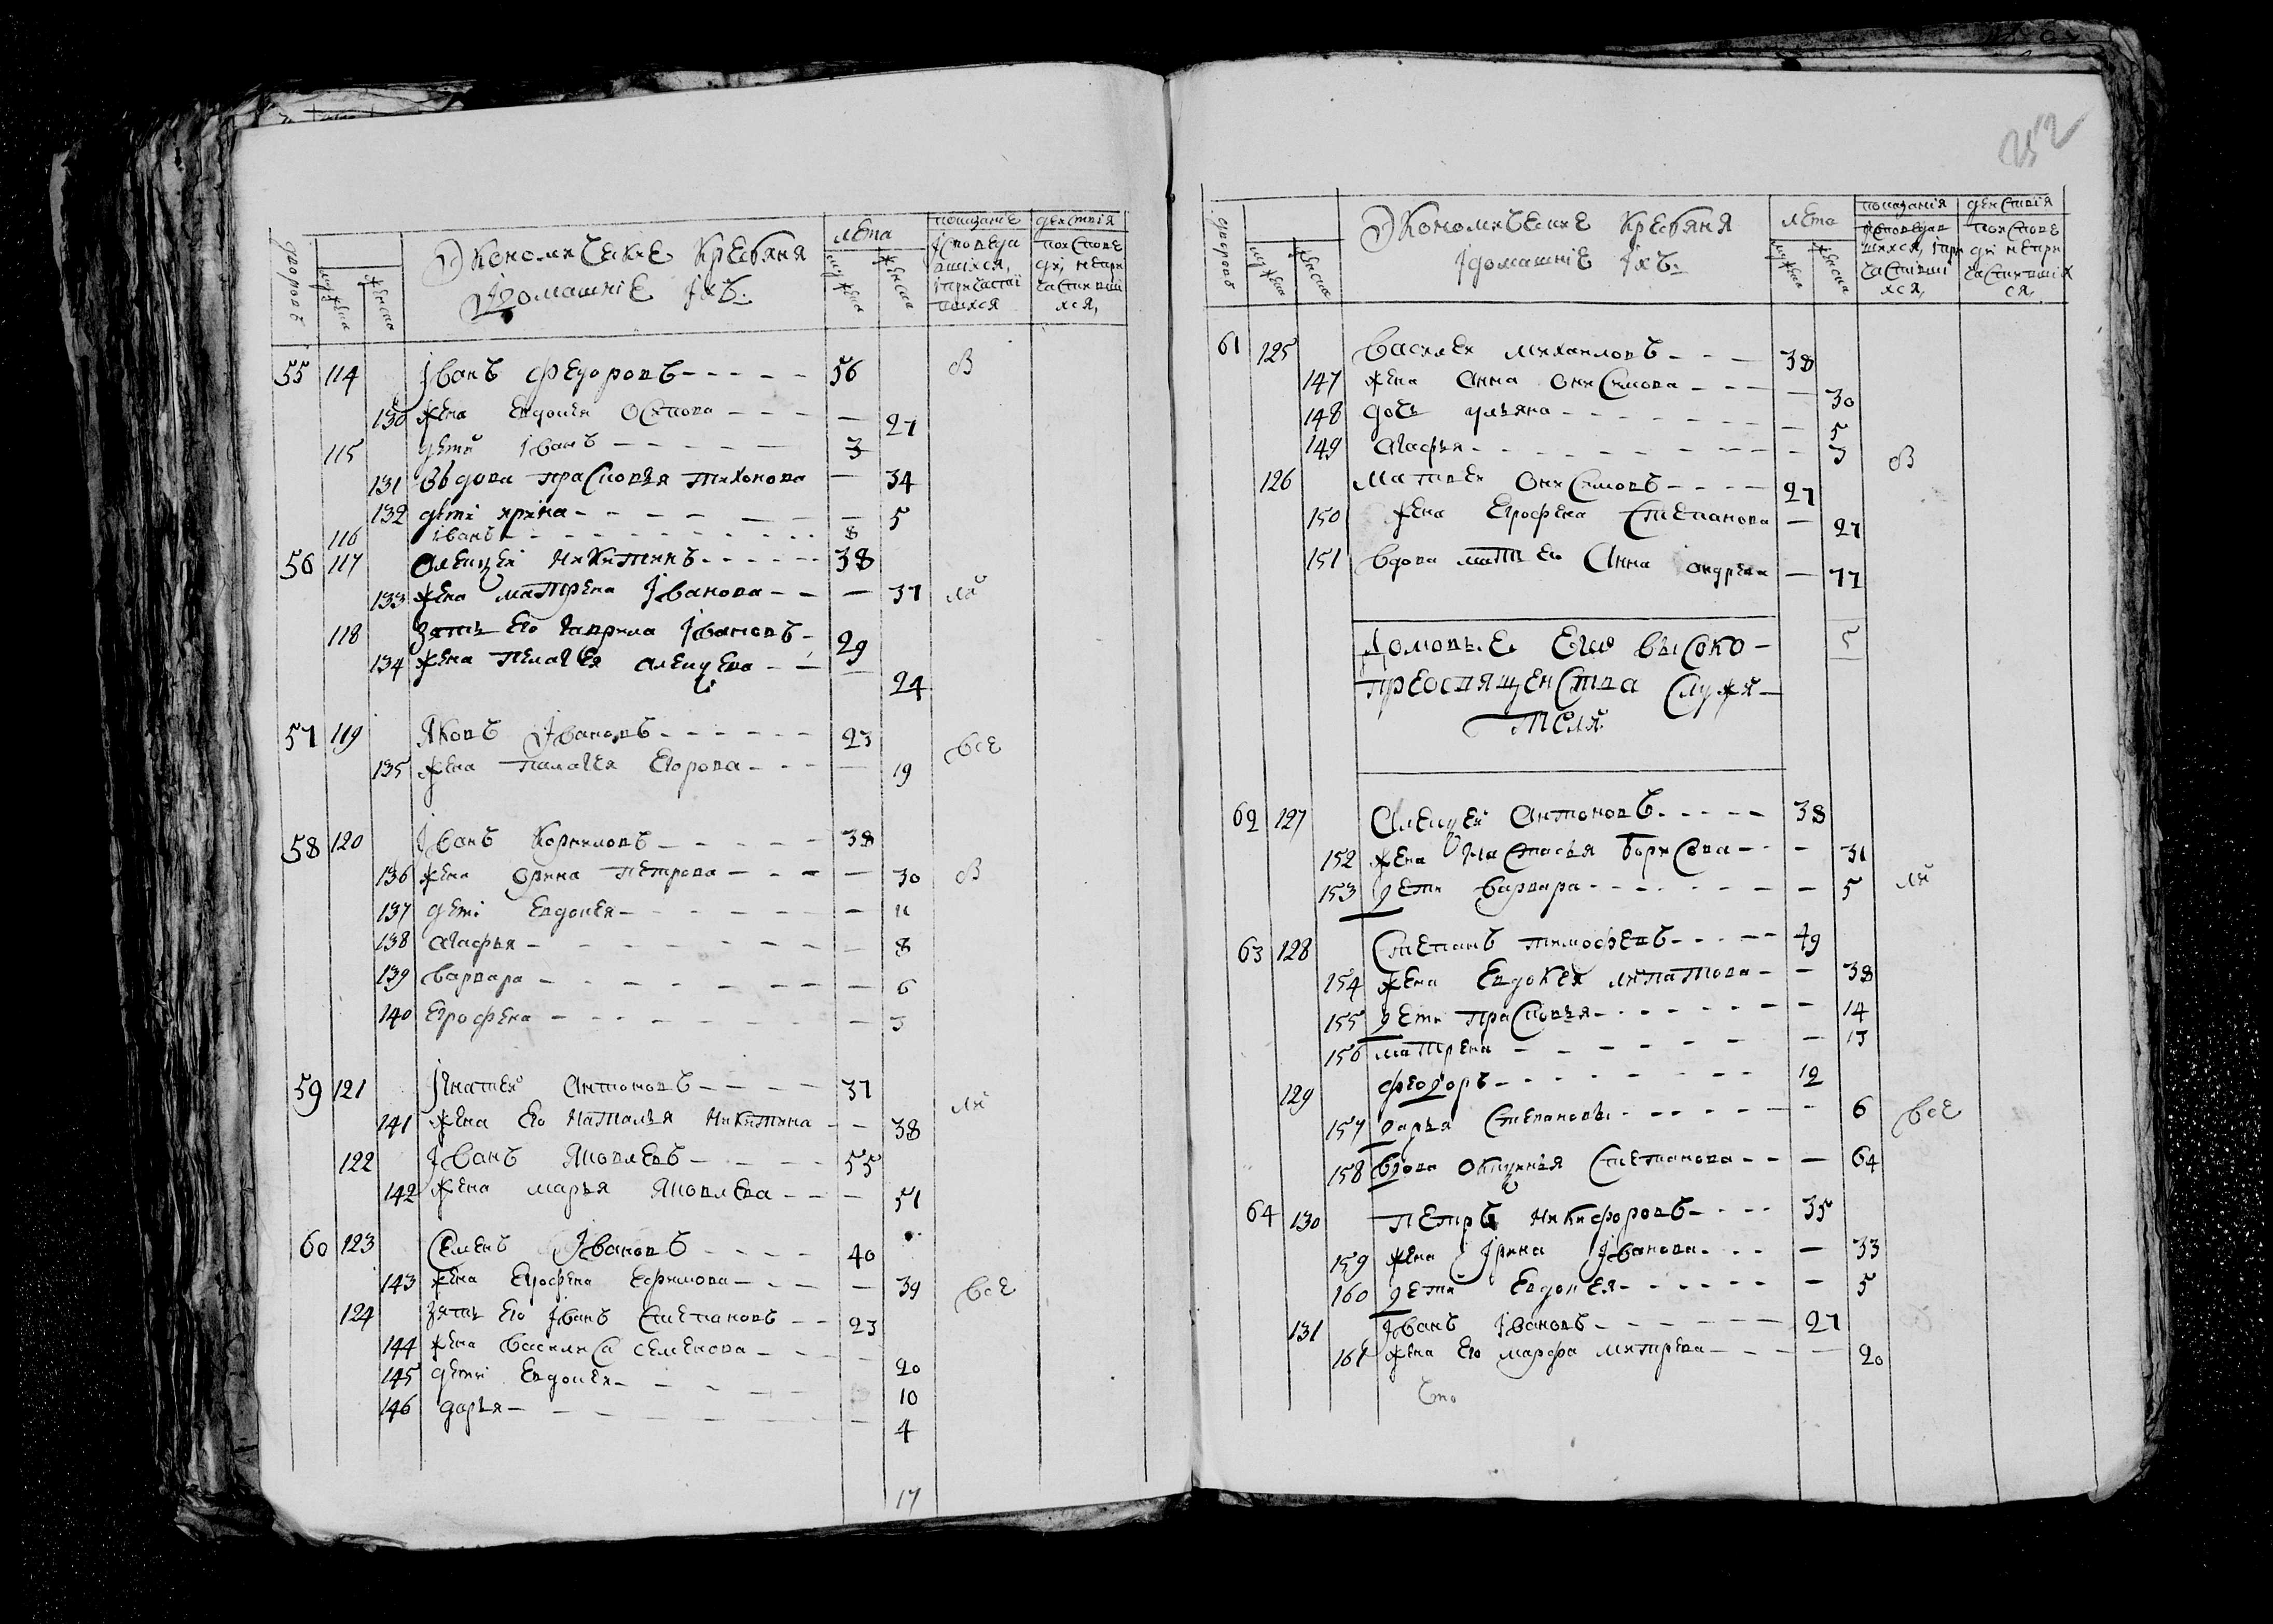 дворовъ
мужска
женска
Экономическіе крестьяня
Ідомашніе іхъ.
лета
мужска
женска
показаніе
Ісповеда
вшихся,
іпричасти
вшихся
деиствія
поисповѣ
ди, неприча
частивши
хся,
55 114 Іванъ Федоровъ 56 В
130 жена Евдокея Осипова 27
115 дети Іванъ 3
131 Вьдова прасковья тихонова 34
132 дети ирина 5
116 іванъ 8
56 117 Алексѣи Никитинъ 38
133 жена матрена Іванова 37 ли
118 зять Его гаврила Івановъ 29
134 жена пелагея алексѣева 24
57 119 Яковъ Івановъ 23
все
135 жена палагея Егорова 19
58 120 Іванъ Корниловъ 38
136 жена орина петрова 30 В
137 дети Евдокея 11
138 агафья 8
139 варвара 6
140 Егрофена 3
59 121 Ігнатей антоновъ 37
ли
141 жена Его наталья никитина 38
122 Іванъ яковлевъ 55
142 жена марья яковлева 51
60 123 Семенъ Івановъ 40
143 жена Егрофена Ефимова 39 все
124 зять Его Іванъ Степановъ 23
144 жена василиса семенова 20
145 дети Евдокея 10
146 дарья 4
17
252
дворовъ
мужска
женска
Экономическіе крестьяня
Ідомашніе іхъ.
лета
мужска
женска
показанія
исповедав
шихся, іпри
частивши
хся,
деиствія
поисповѣ
ди непри
частивших
ся
61 125 Василеи михаиловъ 38
147 жена анна онисимова 30
148 дочь ульяна 5
149 агафья 3
В
126 матвеи онисимовъ 27
150 жена Егрофена Степанова 27
151 вдова мать Его Анна андреева 77
Домовые Его высоко-
преосвященства служи-
тели.
5
62 127 Алексѣй антоновъ 38
152 жена настасья борисова 31
153 дети варвара 5 ли
63 128 Степанъ тимофѣевъ 49
154 жена Евдокея липатова 38
155 дети прасковья 14
156 матрена 13
129 феодоръ 12
157 дарья Степановы 6 все
158 вдова окулинья Степанова 64
64 130 петръ никифоровъ 35
159 жена Ірина Іванова 33
160 дети Евдокея 5
131 Іванъ Івановъ 27
161 жена Его марфа митрева 20